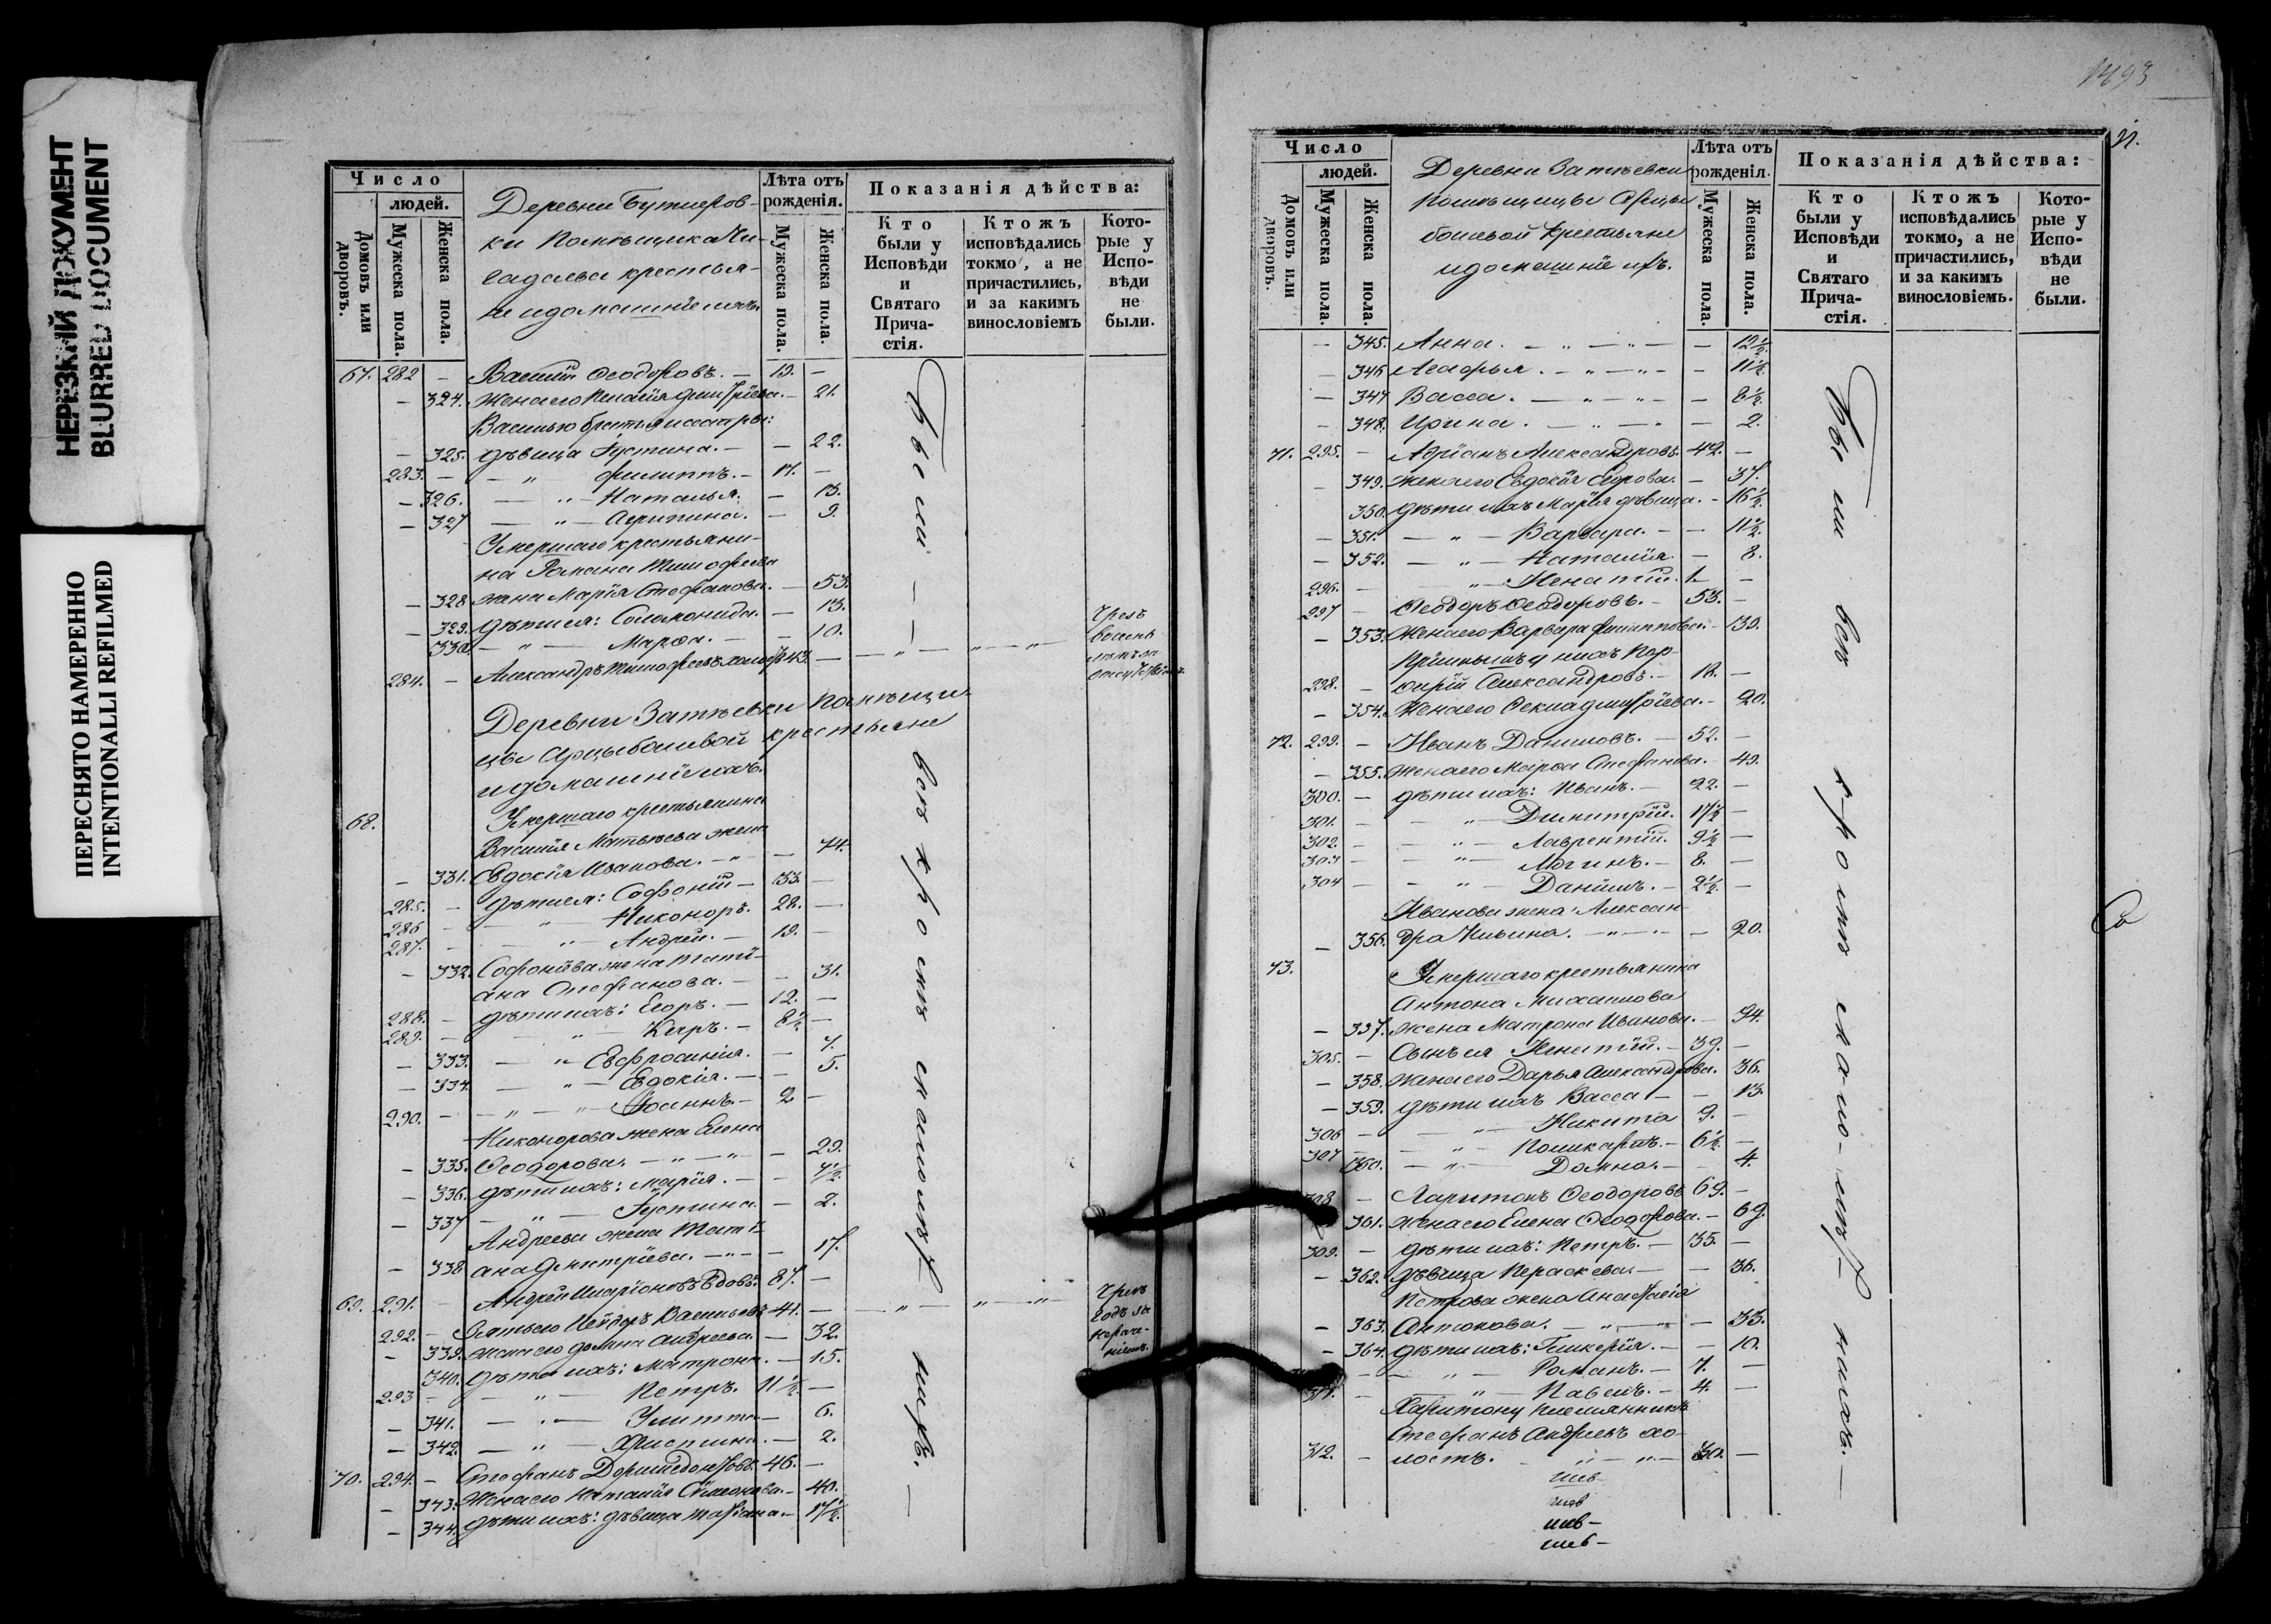 НЕРЕЗКИЙ ДОКУМЕНТ
BLURRED DOCUMENT
ПЕРЕСНЯТО НАМЕРЕННО
INTENTIONALLI REFILMED
Число
людей.
Домовъ или дворовъ.
Мужеска пола.
Женска пола.
Деревни Бутиров-
ки помѣщика
крестья-
не и домашніе ихъ.
Лѣта отъ рожденія.
Мужеска пола.
Женска пола.
Показанія дѣйства:
Кто были у Исповѣди и Святаго Прича-стія.
Ктожъ исповѣдались токмо, а не причастились, и за какимъ винословіемъ
Кото-рые у Испо-вѣди не были.
67. 282 — Василій Ѳеодоровъ. — 19. —
— 324. Жена его Пелагія Димитріева. — 21.
Василью братья и сестры:
— 325. дѣвица Іустина. — — 22.
283. — — „ Филиппъ. — 17. —
— 326. — „ — Наталья. — 13.
— 327 — „ — Агрипина. — 9.
Умершаго крестьяни-
на Романа Тимофеева
— 328 жена Марія Стефанова. — 53.
— 329. дѣти ея: Соломонида. — 13.
330. — „ — Марѳа. — — 10.
284. — Александръ Тимофеевъ холостъ 43. — — „ — „ — „ —
Деревни Затѣевки помѣщи-
цы Арцыбашевой крестьяне
и домашніе ихъ.
68. Умершаго крестьянина
Василія Матвѣева жена
— 331. Евдокія Иванова. — „ — — 74.
285. — дѣти ея: Софоній — 33. —
286 — — „ — Никоноръ. 28. —
287. — — „ — Андрей. — 19. —
— 332. Софоніева жена Тати-
ана Стефанова. — — 31.
288. — дѣти ихъ: Егоръ. — 12. —
289. — — „ — Киръ. — 8½ —
— 333. — „ — Евфросинія. — 7.
— 334 — „ — Евдокія. — — 5.
290. — — „ — „ — Іоаннъ. — 2 —
Никонорова жена Елена
— 335. Ѳеодорова. — „ — „ — 29.
— 336. дѣти ихъ: Марія. — — 4½
— 337 — „ — Іустина. — 2.
Андреева жена Тати-
— 338 ана Димитріева. — „ — — 17.
69. 291. — Андрей Иларіоновъ вдовъ. 87. — — „ — „ — „ —
292. — Зять его Исидоръ Васильевъ 41. —
— 339. жена его Домна Андреева. — 32.
340. дѣти ихъ: Матрона. — 15.
293 — — „ — Петръ. 11½ —
— 341. — „ — Улитта — 6.
— 342. — „ — Христина. — 2.
70. 294. — Стефанъ Доримедонтовъ. 46. —
— 343. Жена его Наталія Симеонова. — 40.
— 344. дѣти ихъ: дѣвица Татіана. — 17½.
Были всѣ кромѣ малолѣтнихъ. —
1493
Число
людей.
Домовъ или дворовъ.
Мужеска пола.
Женска пола.
Деревни Затѣевки
помѣщицы Арцы-
башевой крестьяне
и домашніе ихъ.
Лѣта отъ рожденія.
Мужеска пола.
Женска пола.
Показанія дѣйства:
Кто были у Исповѣди и Святаго Прича-стія.
Ктожъ исповѣдались токмо, а не причастились, и за какимъ винословіемъ.
Кото-рые у Испо-вѣди не были.
— 345. Анна. — „ — „ — — 12½.
— 346 Агафья. — „ — „ — — 11½.
— 347 Васса. — „ — „ — — 8½.
— 348. Ирина. — „ — „ — 2.
71. 295. — Адріанъ Александровъ. 42. —
— 349. Жена его Евдокія Егорова. — 37.
350. дѣти ихъ Марія дѣвица. — 16½.
— 351. — „ — Варвара. — — 11½.
— 352. — „ — Наталія. — 8.
296. — „ — Игнатій. 1. —
297 — Ѳеодоръ Ѳеодоровъ. — 53. —
— 353. Жена его Варвара Филиппова. — 39.
Пріимышъ у нихъ Пор-
298. — фирій Александровъ. — 18. —
— 354. Жена его Ѳекла Димитріева. — 20.
72. 299. — Иванъ Даниловъ. — 52. —
— 355. Жена его Марѳа Стефанова. — 49.
300. — дѣти ихъ: Иванъ. — 22. —
301. — — „ — Димитрій. 17½ —
302. — — „ — Лаврентій. 9½ —
303 — — „ — Логинъ. — 8. —
304 — — „ — Даніилъ. — 2½. —
Иванова жена Алексан-
— 356. дра Ильина. — „ — „ — 20.
73. Умершаго крестьянина
Антона Михаилова
— 357. жена Матрона Иванова. — 94.
305. — Сынъ ея Игнатій. — 39. —
— 358. Жена его Дарья Александрова. 36.
— 359. дѣти ихъ Васса — — 13.
306 — — „ — Никита 9. —
307 — — „ — Поликарпъ. — 6½. —
360. — „ — Домна. — 4.
308 — Харитонъ Ѳеодоровъ 69. —
361. Жена его Елена Ѳеодорова. — 69.
309. — дѣти ихъ: Петръ. — 35. —
— 362. дѣвица Параскева. — — 36.
Петрова жена Анастасія
— 363. Антонова. — „ — „ — — 33.
— 364. дѣти ихъ: Гликерія. — — 10.
— — „ — Романъ. — 7. —
311. — — „ — Павелъ. — 4. —
Харитону племянникъ
Стефанъ Андреевъ хо-
312. — лостъ. „ — „ — 30. —
Были всѣ кромѣ мало-лѣтнихъ. —